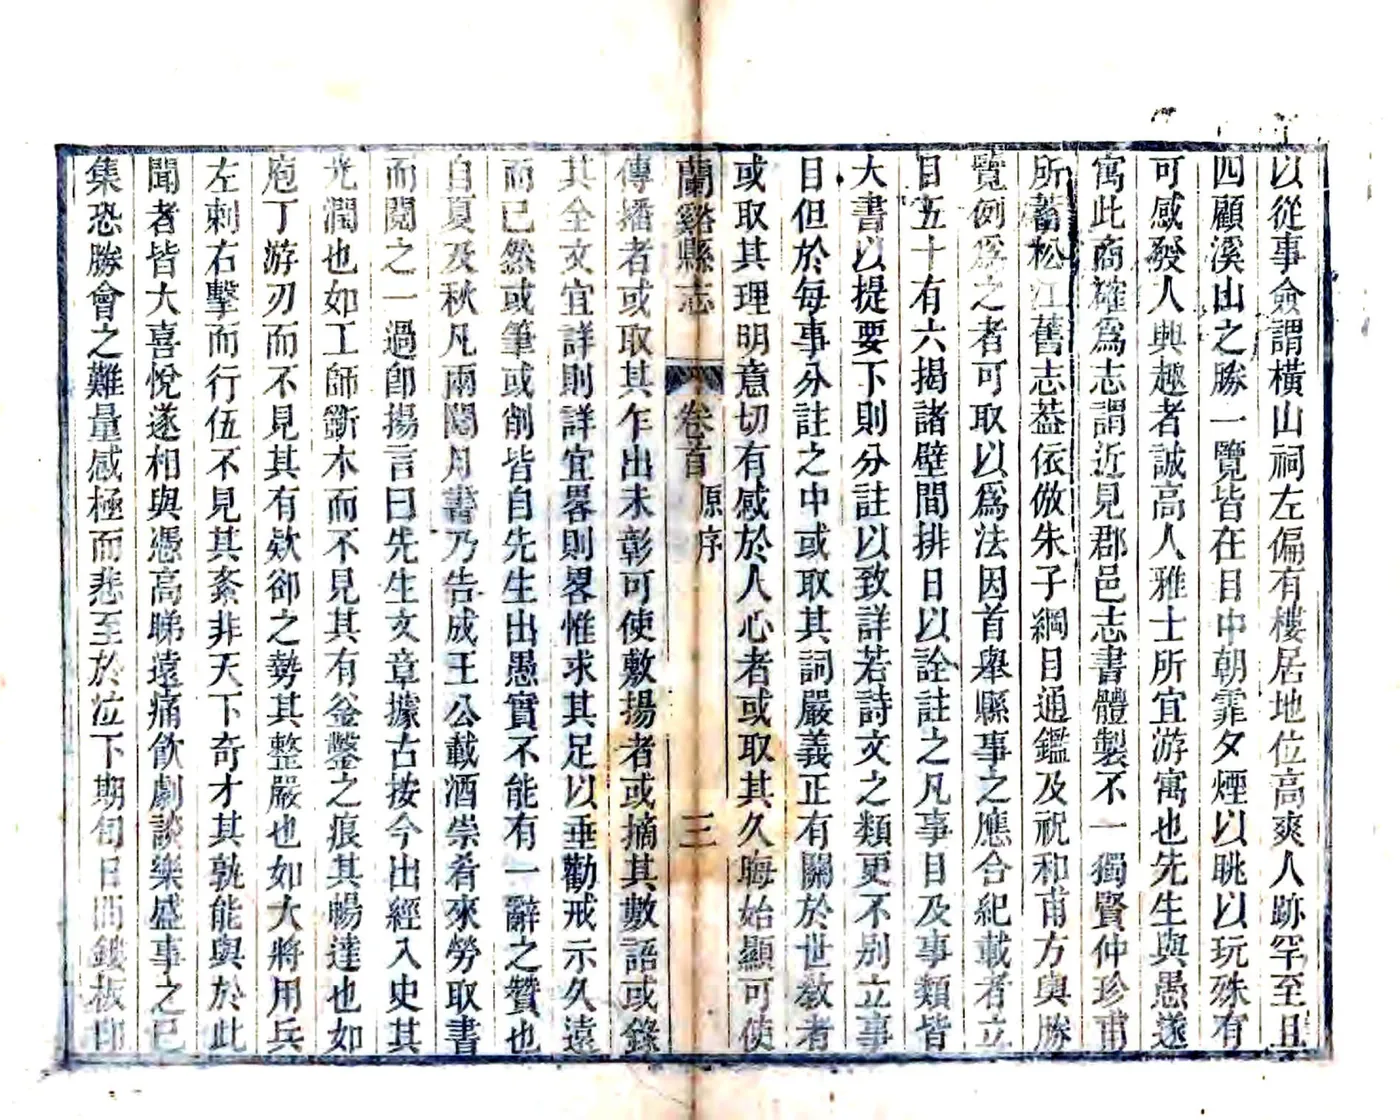 以從事僉謂橫山祠左偏有樓居地位高爽人跡罕至且
四顧溪山之勝一覽皆在目中朝霏夕煙以眺以玩殊有
可感發人興趣者誠高人雅士所宜游寓也先生與愚遂
寓此商確爲志謂近見郡邑志書體製不一獨賢仲珍甫
所蓄松江舊志葢依倣朱子綱目通鑑及祝和甫方輿勝
覽例爲之者可取以爲法因首舉縣事之應合紀載者立
目五十有六揭諸壁間排日以詮註之凡事目及事類皆
大書以提要下則分註以致詳若詩文之類更不別立事
目但於每事分註之中或取其詞嚴義正有關於世教者
或取其理明意切有感於人心者或取其久晦始顯可使
蘭谿縣志 卷首 原序 三
傳播者或取其乍出未彰可使敷揚者或摘其數語或錄
其全文宜詳則詳宜畧則畧惟求其足以垂勸戒示久遠
而已然或筆或削皆自先生出愚實不能有一辭之贊也
自夏及秋凡兩閱月書乃告成王公載酒崇肴來勞取書
而閱之一過卽揚言曰先生文章據古按今出經入史其
光潤也如工師斵木而不見其有釜鑿之痕其暢達也如
庖丁游刃而不見其有欵卻之勢其整嚴也如大將用兵
左刺右擊而行伍不見其紊非天下奇才其孰能與於此
聞者皆大喜悅遂相與憑高睇遠痛飲劇談樂盛事之已
集恐勝會之難量感極而悲至於泣下期旬日而鋟板印